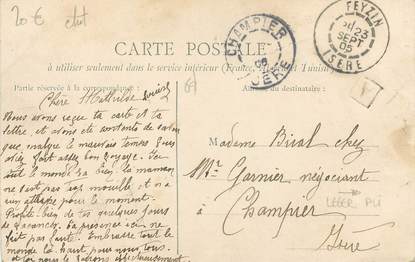 20 €
FEYZIN
23
SEPT
05
ISÈRE
CHAMPIER
05
ISÈRE
CARTE POSTALE
à utiliser seulement dans le service intérieur (France, et Tunisie)
Partie réservée à la correspondance
Adresse du destinataire
Chère Mathilde
Nous avons reçu ta carte et ta
lettre, et avons été contents de savoir
que, malgré le mauvais temps
fait assez bon voyage.
tout le monde va bien, la maman
ne s'est pas trop mouillé et n'a
pour le moment.
Profite bien de tes quelques jours
de vacances. Ta présence ici ne
fait pas faute. Embrasse tout le
monde là haut pour nous tous.
et toi nous te
Madame Biral chez
Mr Garnier négociant
à Champier
Isère
LEGER PLI